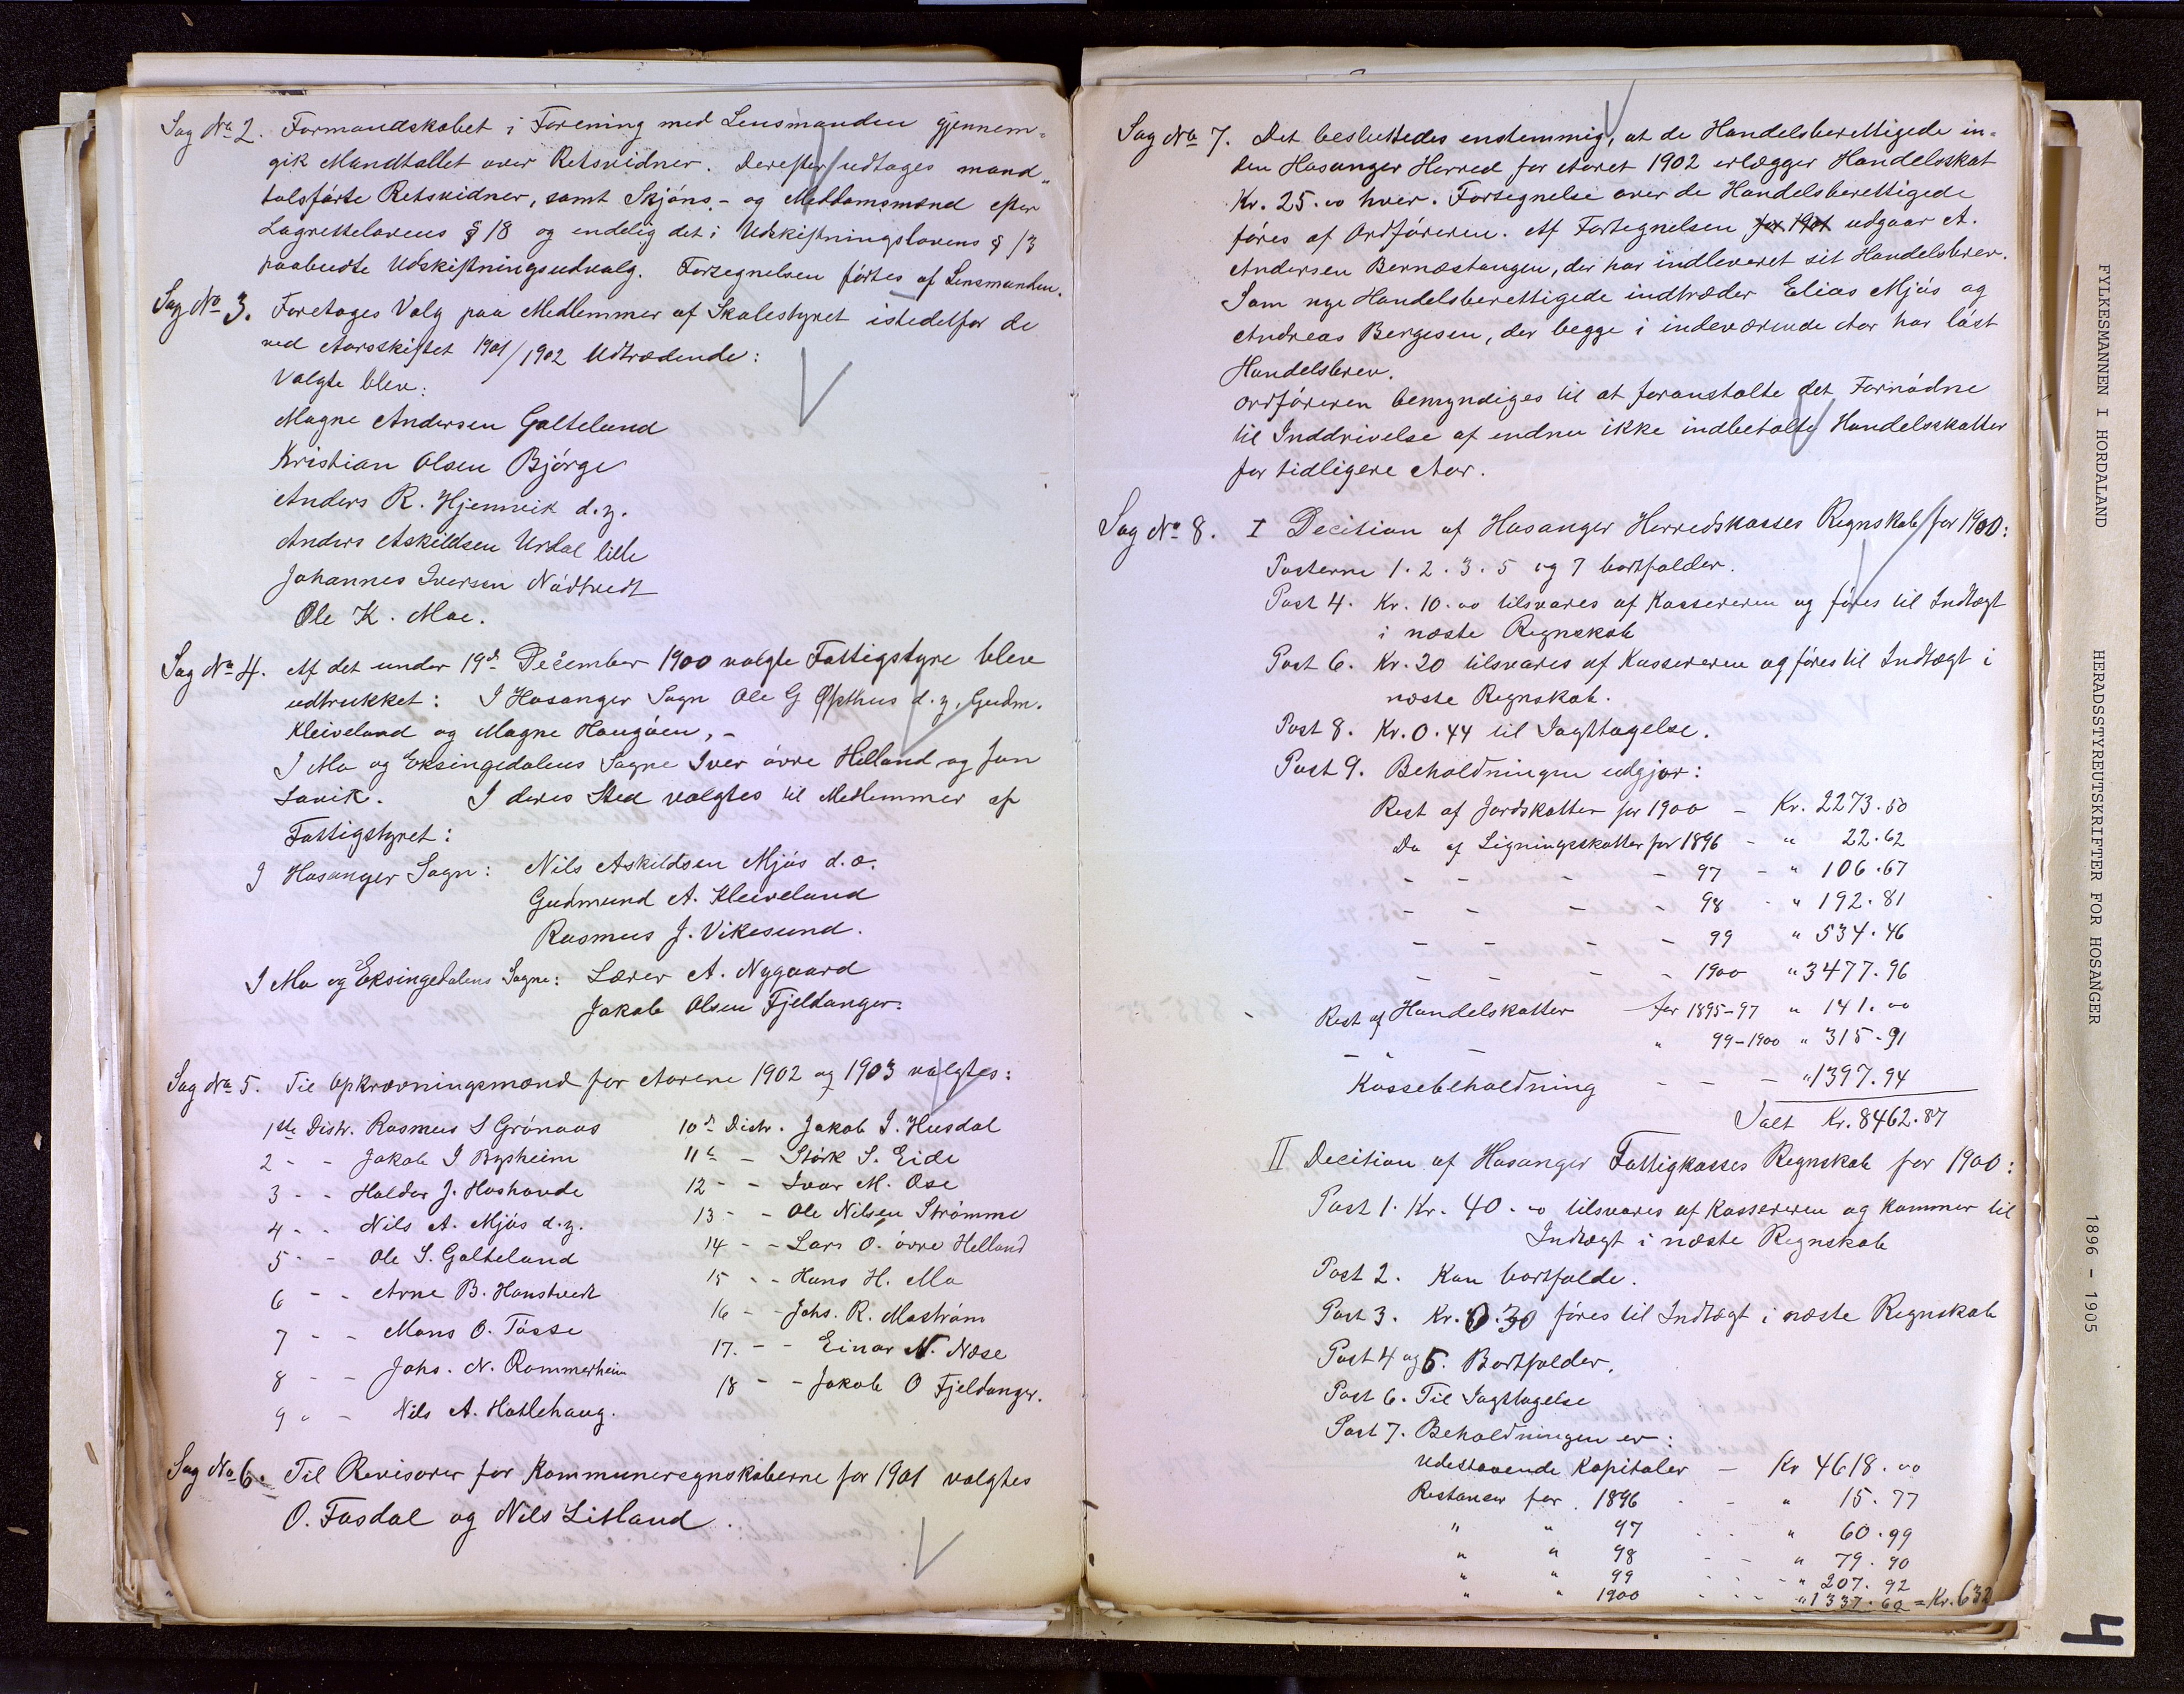 Sag No 2. Formandskabet i Forening med Lensmanden gjennem=
gik Mandtallet over Retsvidner. Derefter udtages mand„
talsførte Retsvidner, samt Skjøns- og Meddomsmænd efter
Lagrettelovens § 18 og endelig det i Udskiftningslovens § 13
paabudte Udskiftningsudvalg. Fortegnelsen førtes af Lensmanden.
Sag No 3. Foretoges Valg paa Medlemmer af Skolestyret istedetfor de
ved Aarsskiftet 1901/1902 Udtrædende:
Valgte blev:
Magne Andersen Galteland
Kristian Olsen Bjørge
Anders R. Hjemvik d.y.
Anders Askildsen Urdal lille
Johannes Iversen Nådtvedt
Ole K. Moe.
Sag No 4. Af det under 19d December 1900 valgte Fattigstyre blev
udtrukket: I Hosanger Sogn Ole G Opthus d.y. Gudm.
Kleiveland og Magne Haugøen, -
I Mo og Eksingedalens Sogne Iver øvre Helland og Jon
Lavik. I deres Sted valgtes til Medlemmer af
Fattigstyret:
I Hosanger Sogn: Nils Askildsen Mjøs d.æ.
Gudmund A. Kleiveland
Rasmus J. Vikesund.
I Mo og Eksingedalens Sogne: Lærer A. Nygaard
Jakob Olsen Fjeldanger.
Sag No 5. Til Opkrævningsmænd for Aarene 1902 og 1903 valgtes:
1ste Distr. Rasmus S Grønaas
2 - - Jakob I Bysheim
3 - - Haldor J. Hoshovde
4 - - Nils A. Mjøs d.y.
5 - - Ole S. Galteland
6 - - Arne B. Hanstvedt
7 - - Mons O. Tøsse
8 - - Johs. N. Rommerheim
9 - - Nils A. Hatlehaug.
10d Distr. Jakob I. Husdal
11te - Størk S. Eide
12 - - Ivar M. Ose
13 - - Ole Nilsen Strømme
14 - - Lars O. øvre Helland
15 - - Hans H. Mo
16 - - Johs. R. Mostrøm
17. - - Einar N. Næse
18 - - Jakob O Fjeldanger.
Sag No 6. Til Revisorer for Kommuneregnskaberne for 1901 valgtes
O. Fosdal og Nils Litland.
Sag No 7. Det besluttedes enstemmig, at de Handelsberettigede in-
den Hosanger Herred for Aaret 1902 erlægger Handelsskat
Kr. 25.00 hver. Fortegnelse over de Handelsberettigede
føres af Ordføreren. Af Fortegnelsen for 1901 udgaar A.
Andersen Bernæstangen, der har indleveret sit Handelsbrev.
Som nye Handelsberettigede indtræder Elias Mjøs og
Andreas Bergesen, der begge i indeværende Aar har løst
Handelsbrev.
Ordføreren bemyndiges til at foranstalte det Fornødne
til Inddrivelse af endnu ikke indbetalte Handelsskatter
for tidligere Aar.
Sag No 8. I Decition af Hosanger Herredskasses Regnskab for 1900:
Posterne 1. 2. 3. 5 og 7 bortfalder.
Post 4. Kr. 10.00 tilsvares af Kassereren og føres til Indtægt
i næste Regnskab
Post 6. Kr. 20 tilsvares af Kassereren og føres til Indtægt i
næste Regnskab.
Post 8. Kr. 0.44 til Iagttagelse.
Post 9. Beholdningen udgjør:
Rest af Jordskatter for 1900 - Kr. 2273.50
Do af Ligningsskatter for 1896 - " 22.62
- - - - 97 - " 106.67
- - - - 98 - " 192.81
- - - - 99 " 534.46
- - - - 1900 " 3477.96
Rest af Handelskatter for 1895-97 " 141.00
- - - " 99-1900 " 315.91
Kassebeholdning - - - " 1397.94
Ialt Kr. 8462.87
II Decition af Hosanger Fattigkasses Regnskab for 1900:
Post 1. Kr. 40.00 tilsvares af Kassereren og kommer til
Indtægt i næste Regnskab
Post 2. Kan bortfalde.
Post 3. Kr. 0.30 føres til Indtægt i næste Regnskab
Post 4 og 5. Bortfalder.
Post 6. Til Iagttagelse
Post 7. Beholdningen er:
Udestaaende Kapitaler - Kr 4618.00
Restancer for 1896 - - " 15.77
" " 97 - - " 60.99
" " 98 - - " 79.90
" " 99 - - " 207.92
" " 1900 - - - " 1337.60 = Kr. 632
FYLKESMANNEN I HORDALAND HERADSSTYREUTSKRIFTER FOR HOSANGER 1896 - 1905
4